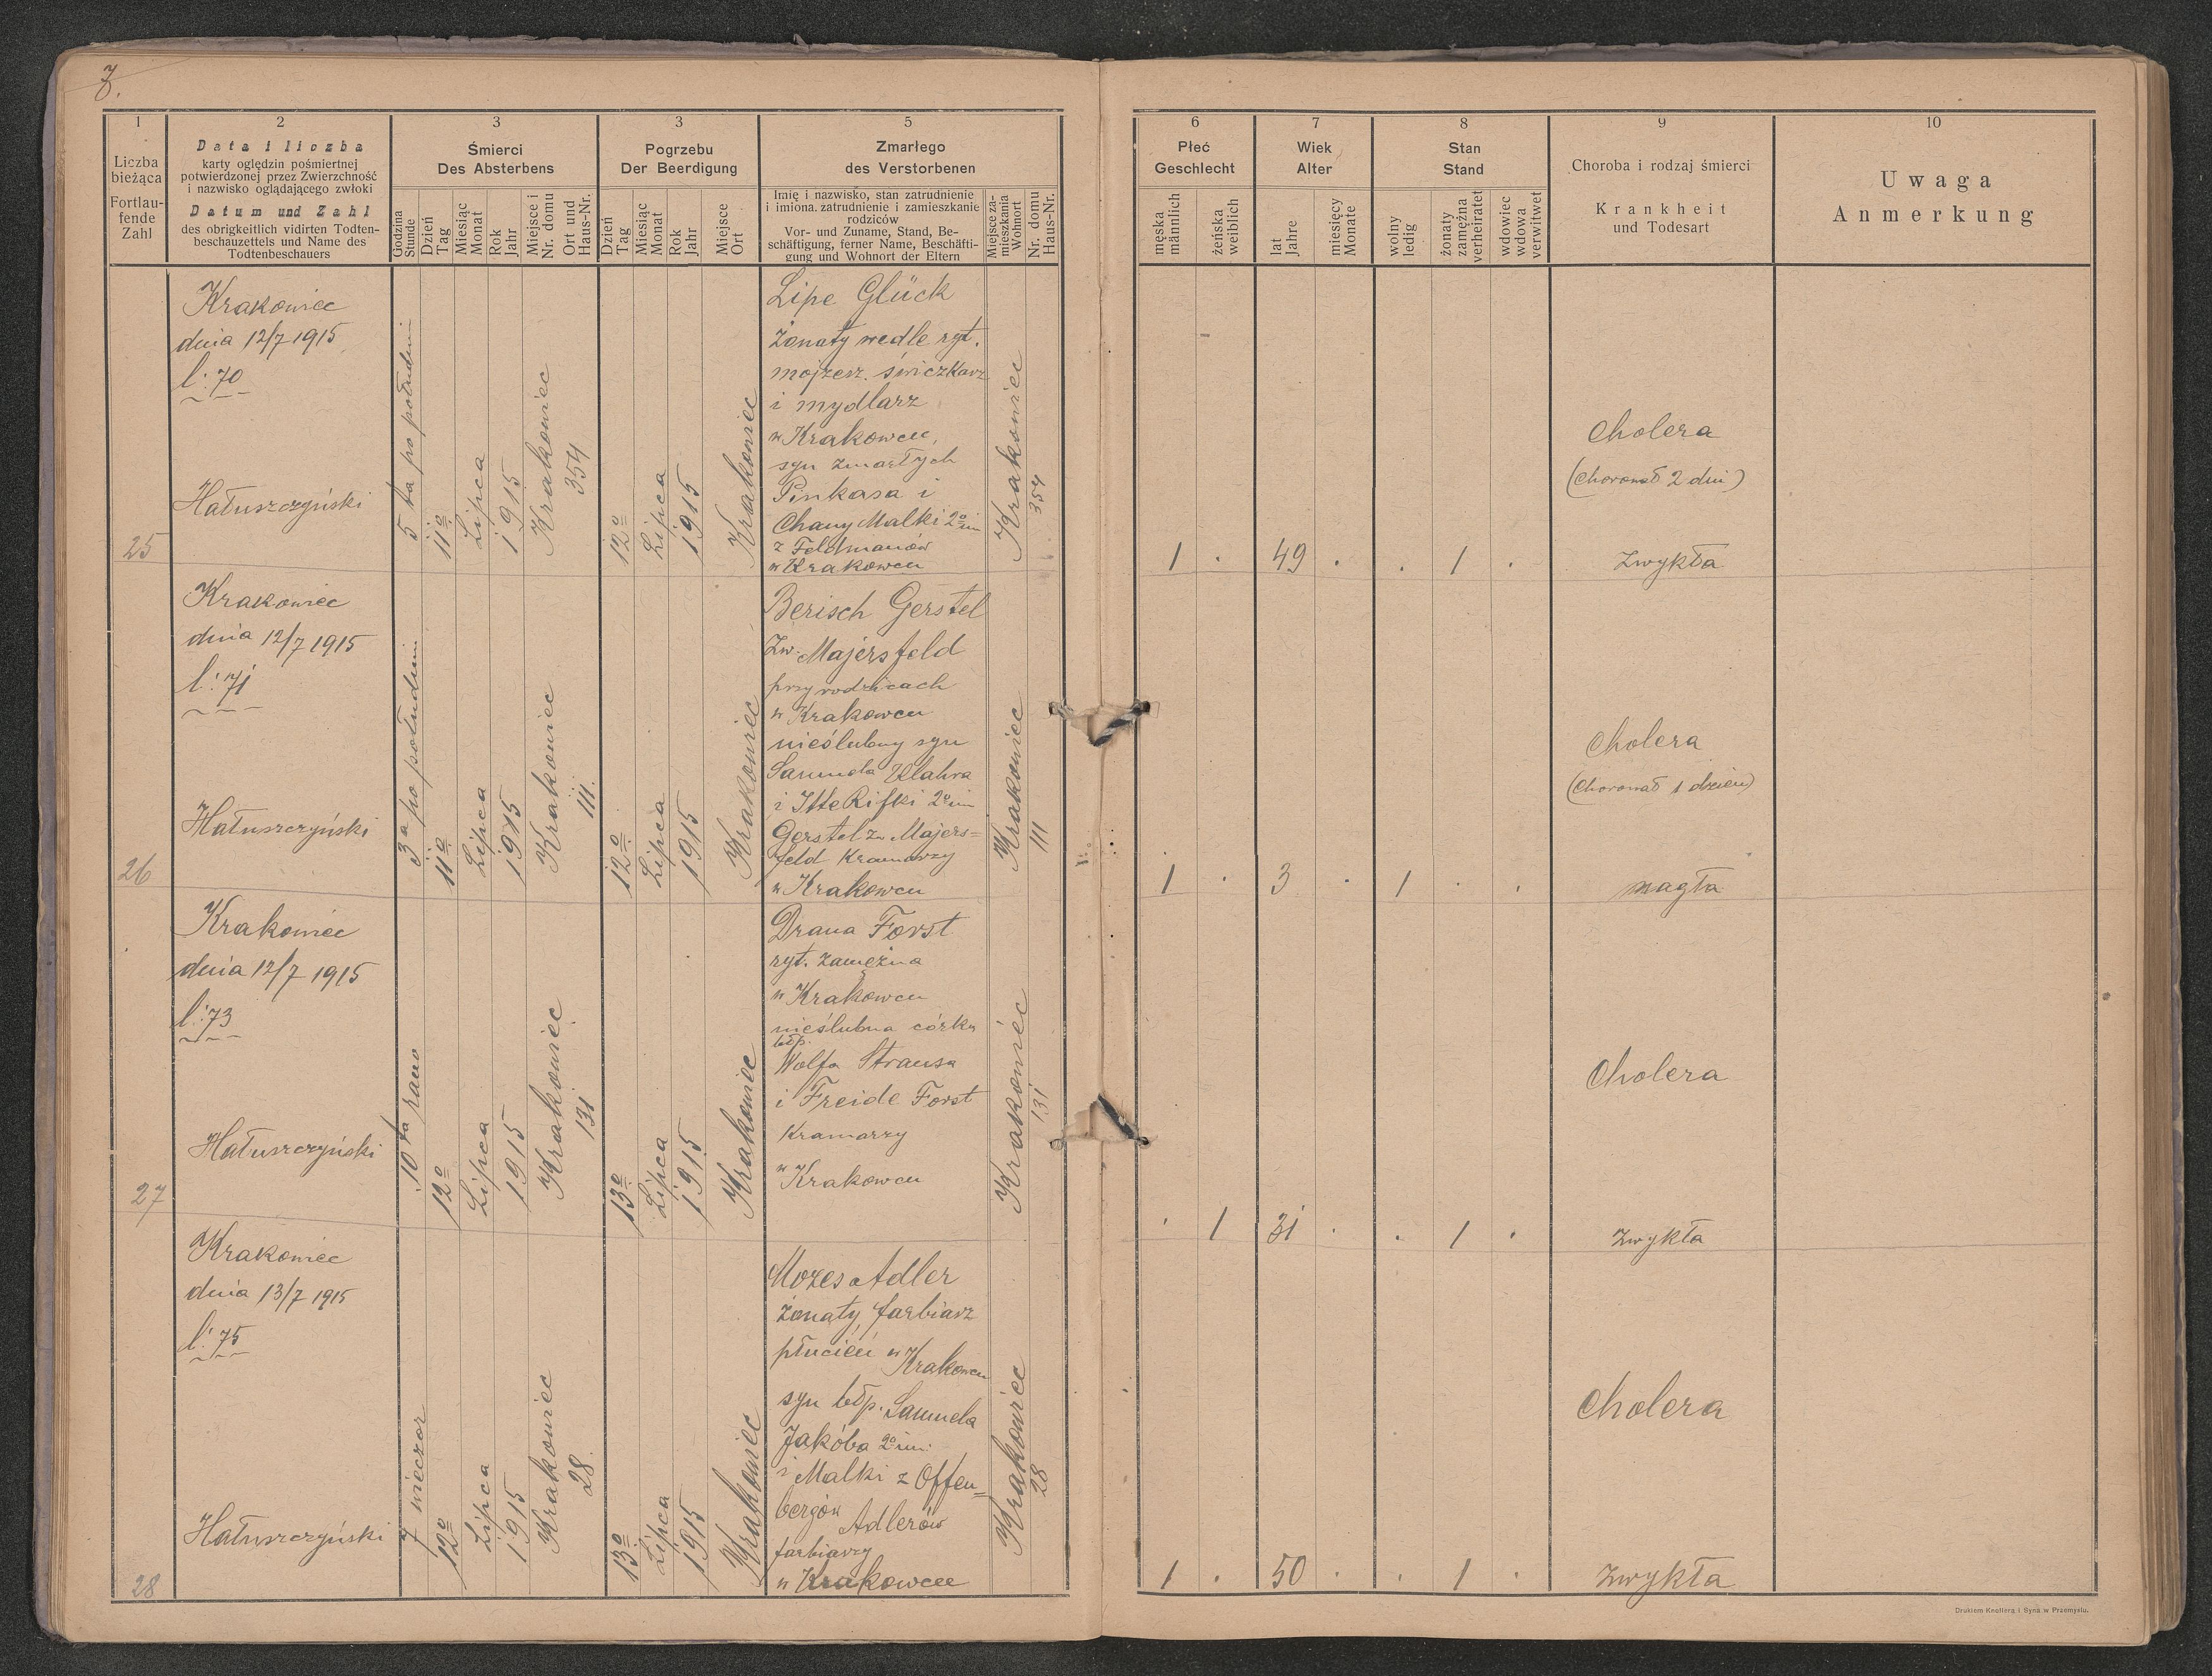 7.
1
2
3
3
5
6
7
8
9
10
Liczba
bieżąca
Fortlau-
fende
Zahl
Data i liczba
karty oględzin pośmiertnej
potwierdzonej przez Zwierzchność
i nazwisko oglądającego zwłoki
Datum und Zahl
des obrigkeitlich vidirten Todten-
beschauzettels und Name des
Todtenbeschauers
Śmierci
Des Absterbens
Godzina
Stunde
Dzień
Tag
Miesiąc
Monat
Rok
Jahr
Miejsce i
Nr. domu
Ort und
Haus-Nr.
Pogrzebu
Der Beerdigung
Dzień
Tag
Miesiąc
Monat
Rok
Jahr
Miejsce
Ort
Zmarłego
des Verstorbenen
Imię i nazwisko, stan zatrudnienie
i imiona. zatrudnienie i zamieszkanie
rodziców
Vor- und Zuname, Stand, Be-
schäftigung, ferner Name, Beschäfti-
gung und Wohnort der Eltern
Miejsce za-
mieszkania
Wohnort
Nr. domu
Haus-Nr.
Płeć
Geschlecht
męska
männlich
żeńska
weiblich
Wiek
Alter
lat
Jahre
miesięcy
Monate
Stan
Stand
wolny
ledig
żonaty
zamężna
verheiratet
wdowiec
wdowa
verwitwet
Choroba i rodzaj śmierci
Krankheit
und Todesart
Uwaga
Anmerkung
25
Krakowiec
dnia 12/7 1915
l: 70
Hałuszczyński
5 ta po południu
11º
Lipca
1915
Krakowiec
354
12º
Lipca
1915
Krakowiec
Lipe Glück
żonaty wedle ryt.
mojżesz. świczkarz
i mydlarz
w Krakowcu,
syn zmarłych
Pinkasa i
Chany Malki 2º im
z Feldmanów
w Krakowcu
Krakowiec
354
1 . 49 . . 1 .
Cholera
(chorował 2 dni)
Zwykła
26
Krakowiec
dnia 12/7 1915
l: 71
Hałuszczyński
3 a po południu
11º
Lipca
1915
Krakowiec
111.
12º
Lipca
1915
Krakowiec
Berisch Gerstel
zw. Majersfeld
przy rodzicach
w Krakowcu
nieślubny syn
Samuela Klahra
i Itte Rifki 2º im
Gerstel zw Majers=
feld Kramarzy
w Krakowcu
Krakowiec
111
1 . 3 . 1 . .
Cholera
(chorował 1 dzień)
nagła
27
Krakowiec
dnia 12/7 1915
l: 73
Hałuszczyński
10 ta rano
12º
Lipca
1915
Krakowiec
131
13º
Lipca
1915
Krakowiec
Drana Forst
ryt. zamężna
w Krakowcu
nieślubna córka
błp.
Wolfa Strausa
i Freide Forst
Kramarzy
w Krakowcu
Krakowiec
131
. 1 31 . . 1 .
Cholera
Zwykła
28
Krakowiec
dnia 13/7 1915
l: 75
Hałuszczyński
7 wieczor
12º
Lipca
1915
Krakowiec
28.
13º
Lipca
1915
Krakowiec
Mozes Adler
żonaty, farbiarz
płucień w Krakowcu
syn błp. Samuela
Jakóba 2º im:
i Malki z Offen=
bergów
Adlerów
farbiarzy
w Krakowcu
Krakowiec
28
1 . 50 . . 1 .
Cholera
Zwykła
Drukiem Knollera i Syna w Przemyślu.